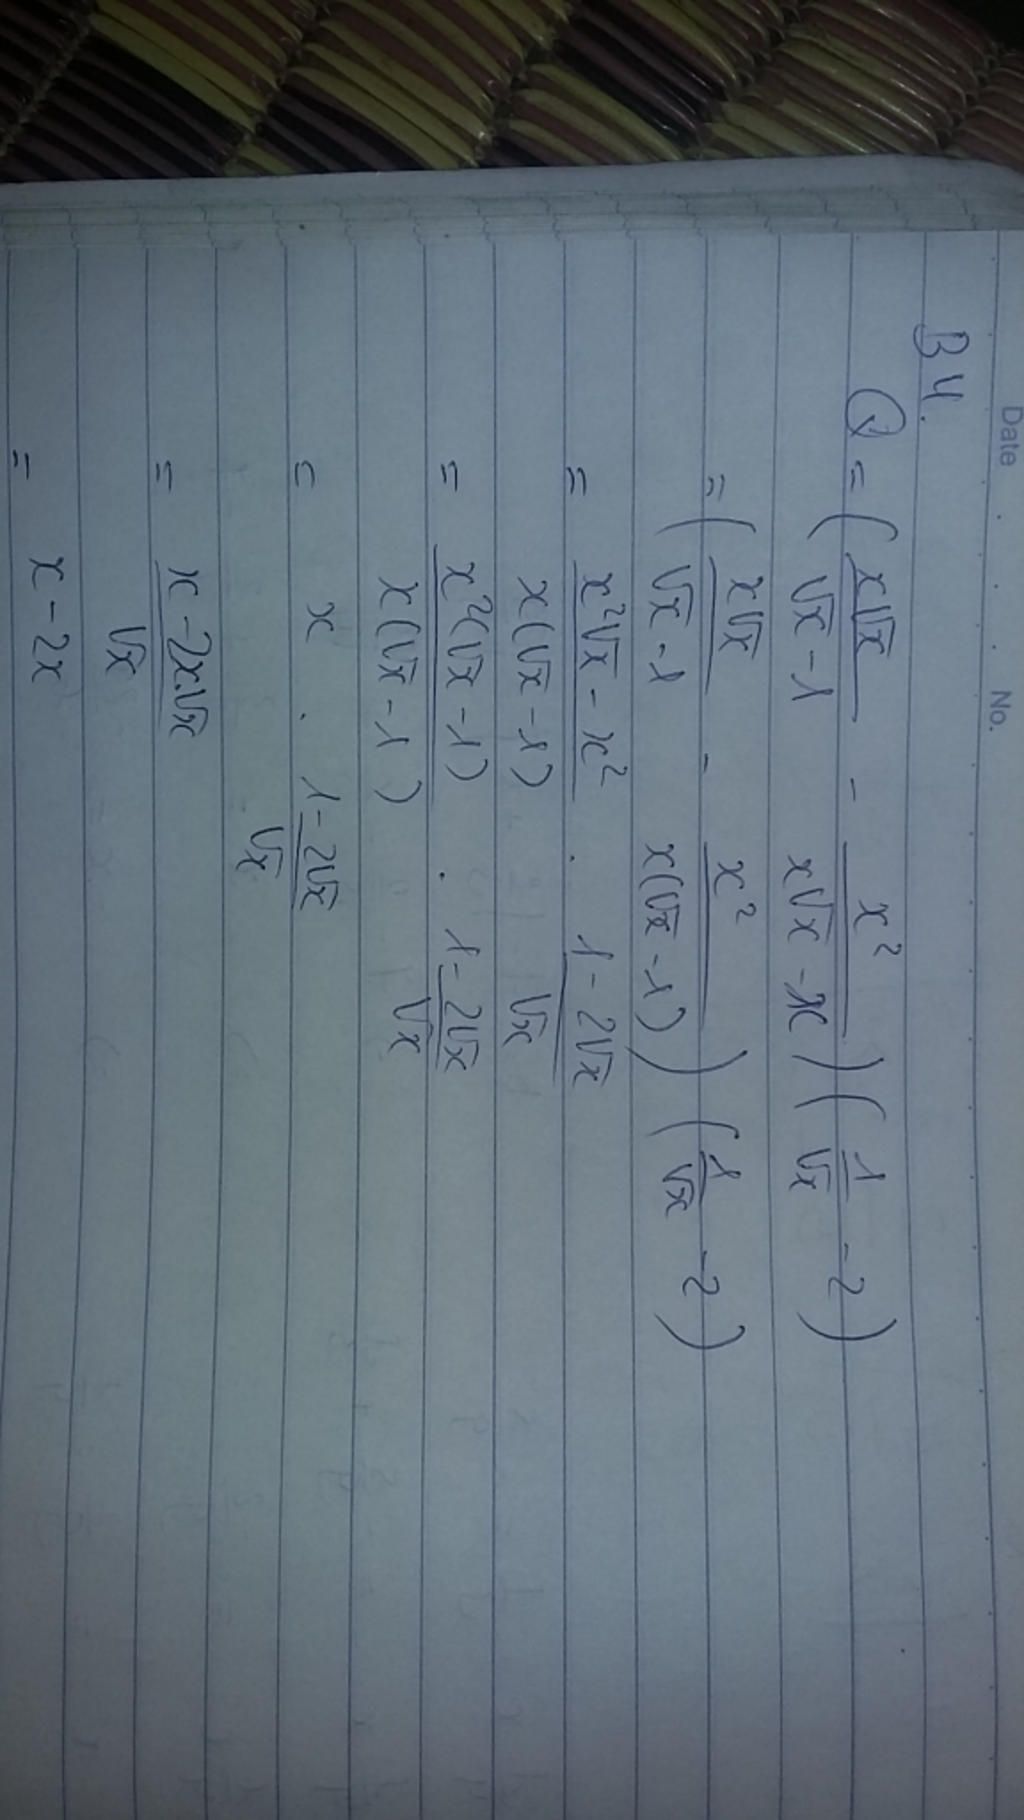 Date No.
B4.
Q = ( x√x / √x - 1 - x² / x√x - x ) ( 1 / √x - 2 )
= ( x√x / √x - 1 - x² / x(√x - 1) ) ( 1 / √x - 2 )
= x²√x - x² / x(√x - 1) . 1 - 2√x / √x
= x²(√x - 1) / x(√x - 1) . 1 - 2√x / √x
= x . 1 - 2√x / √x
= x - 2x.√x / √x
= x - 2x